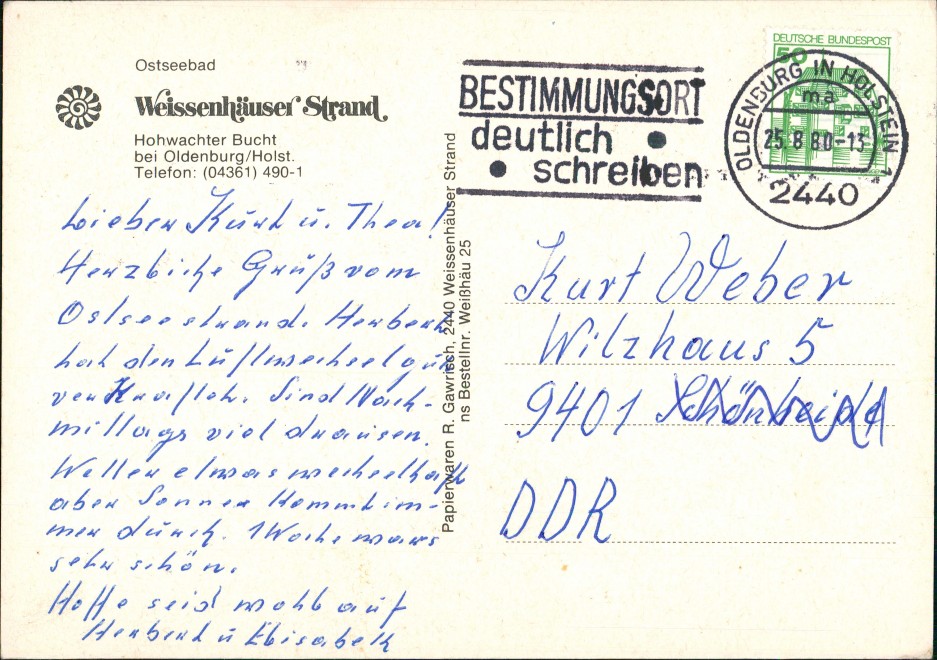 Ostseebad
Weissenhäuser Strand
Hohwachter Bucht
bei Oldenburg/Holst.
Telefon: (04361) 490-1
Lieber Kurt u. Thea!
Herzliche Grüße vom
Ostseestrand. Herbert
hat den Luftwechsel gut
verkraftet. Sind Nach-
mittags viel draussen.
Wetter etwas wechselhaft
aber Sonne kommt im-
mer durch. 1 Woche wars
sehr schön.
Hoffe seid wohl auf
Herbert u Elisabeth
Papierwaren R. Gawrisch, 2440 Weissenhäuser Strand
ns Bestellnr. Weißhäu 25
BESTIMMUNGSORT
deutlich
schreiben
DEUTSCHE BUNDESPOST
50
OLDENBURG IN HOLSTEIN 1
ma
25.8.80-13
2440
Kurt Weber
Wilzhaus 5
9401 Schönheide
DDR